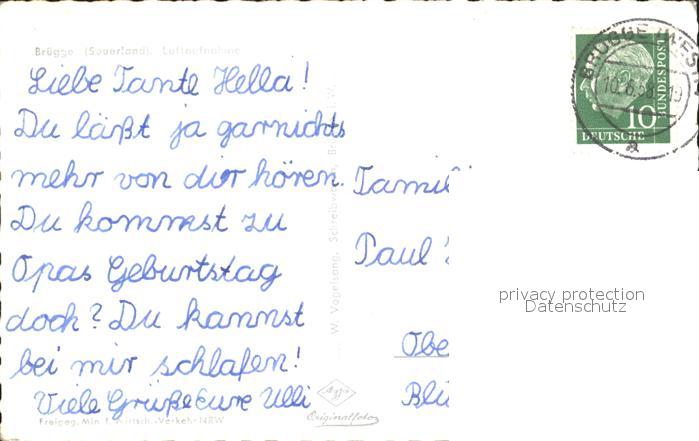 Brügge (Sauerland). Luftaufnahme
Liebe Tante Hella!
Du läßt ja garnichts
mehr von dir hören.
Du kommst zu
Opas Geburtstag
doch? Du kannst
bei mir schlafen!
Viele Grüße Eure Ulli
Freigeg. Min. f. Wirtsch.-Verkehr NRW
W. Vogelsang, Schreibw
Agfa
Originalfoto
BRÜGGE (WES
10.6.58
10
DEUTSCHE
BUNDESPOST
a
Famil
Paul
Obe
Blü
privacy protection
Datenschutz